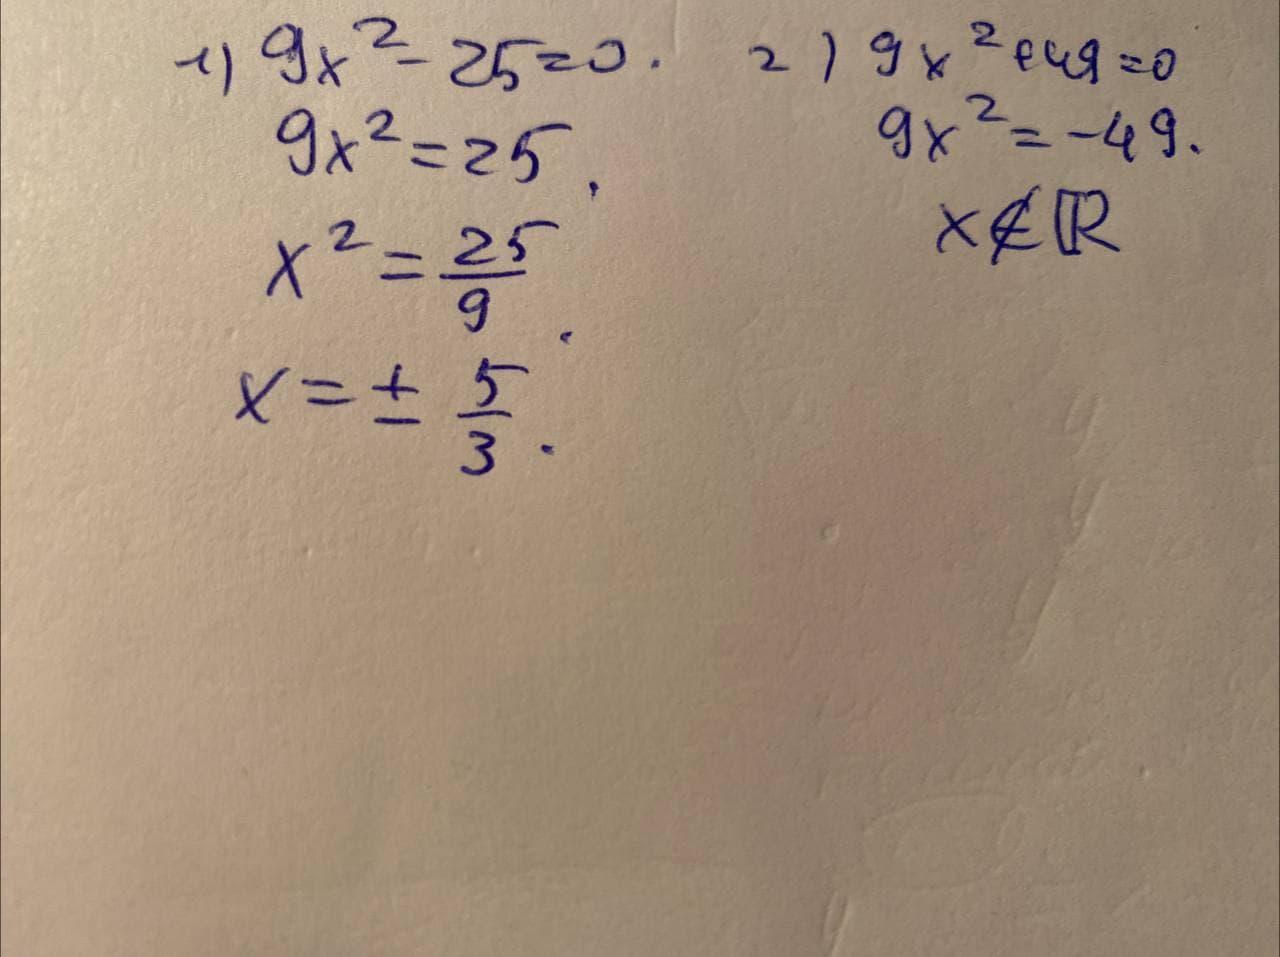 1) 9x² - 25 = 0.
9x² = 25,
x² = 25/9.
x = ± 5/3.
2) 9x² + 49 = 0
9x² = -49.
x ∉ ℝ